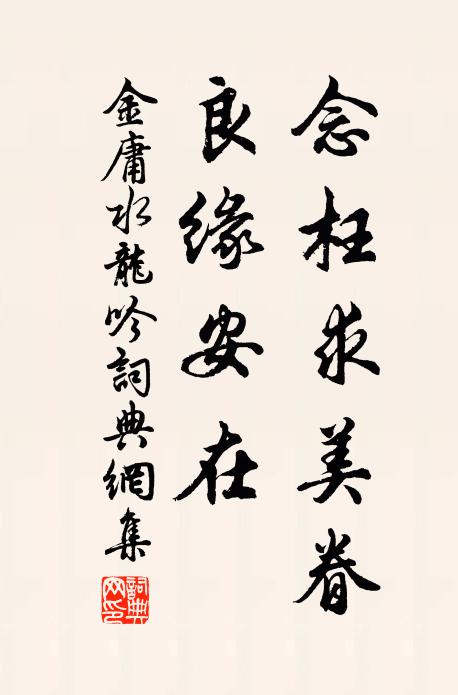 念枉求美眷
良缘安在
金庸水龍吟詞典網集
詞典网印